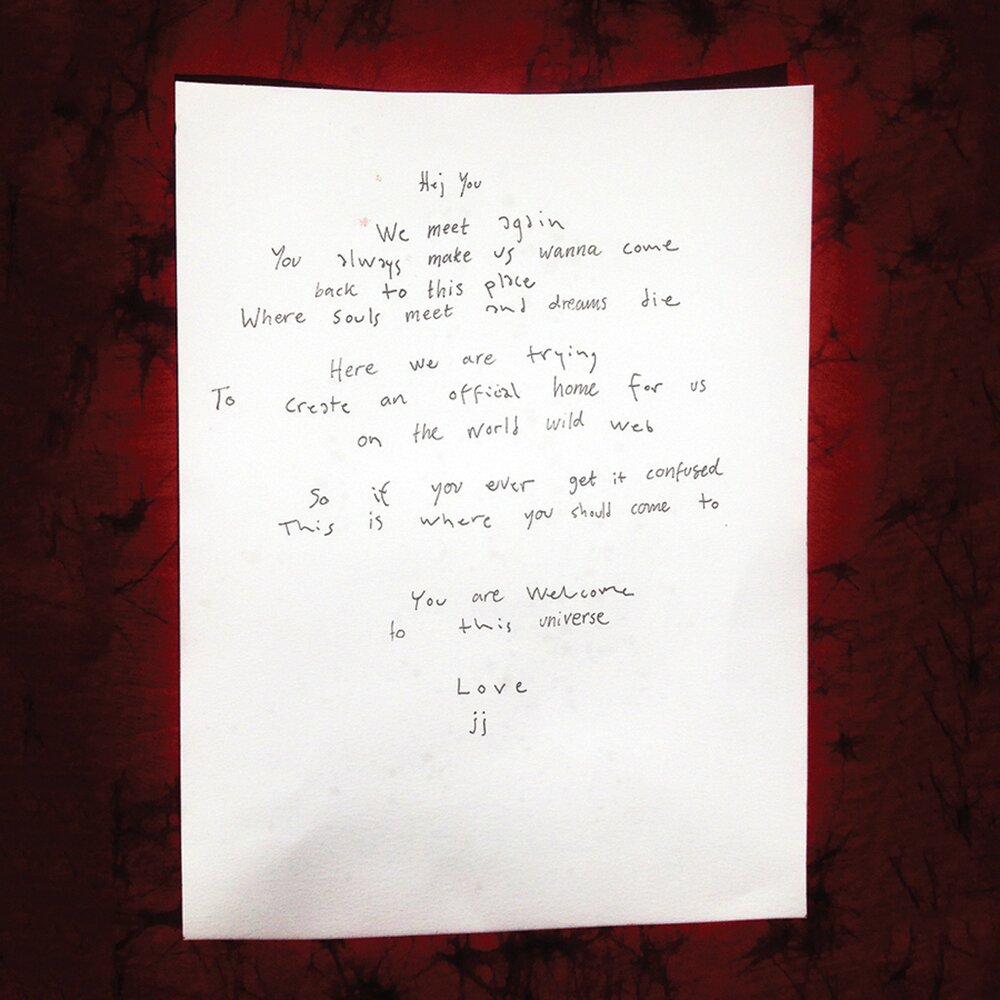 Hej You
We meet again
You always make us wanna come
back to this place
Where souls meet and dreams die
Here we are trying
To create an official home for us
on the world wild web
So if you ever get it confused
This is where you should come to
You are Welcome
to this universe
Love
jj